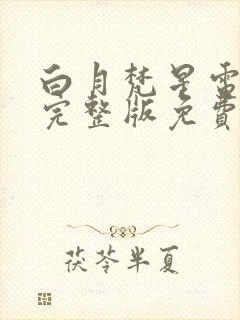 白月梵星雷
完整版免費
茯苓半夏